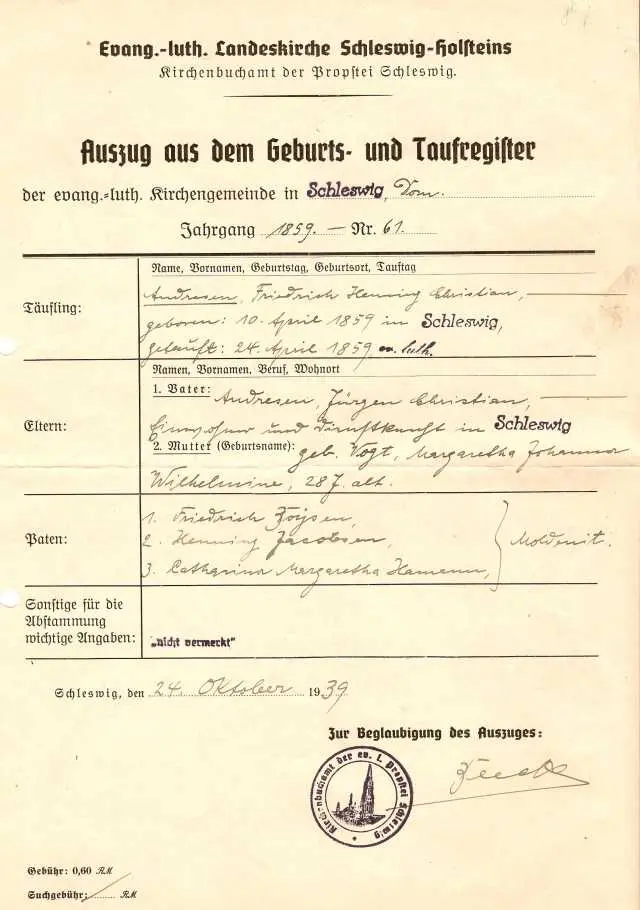 Evang.-luth. Landeskirche Schleswig-Holsteins
Kirchenbuchamt der Propstei Schleswig.
Auszug aus dem Geburts- und Taufregister
der evang.=luth. Kirchengemeinde in Schleswig, Dom.
Jahrgang 1859. — Nr. 61.
Name, Vornamen, Geburtstag, Geburtsort, Tauftag
Täufling:
Andresen, Friedrich Henning Christian,
geboren: 10. April 1859 in Schleswig,
getauft: 24. April 1859. luth.
Namen, Vornamen, Beruf, Wohnort
Eltern:
1. Vater: Andresen, Jürgen Christian,
und Dienstknecht in Schleswig
2. Mutter (Geburtsname): geb. Vogt, Margaretha Johanna
Wilhelmine, 28 J. alt.
Paten:
1. Friedrich
2. Henning Jacobsen,
3. Catharina Margaretha
Moldenit.
Sonstige für die
Abstammung
wichtige Angaben: "nicht vermerkt"
Schleswig, den 24. Oktober 1939
Zur Beglaubigung des Auszuges:
Kirchenbuchamt der ev. l. Propstei Schleswig
Gebühr: 0,60 RM
Suchgebühr: RM